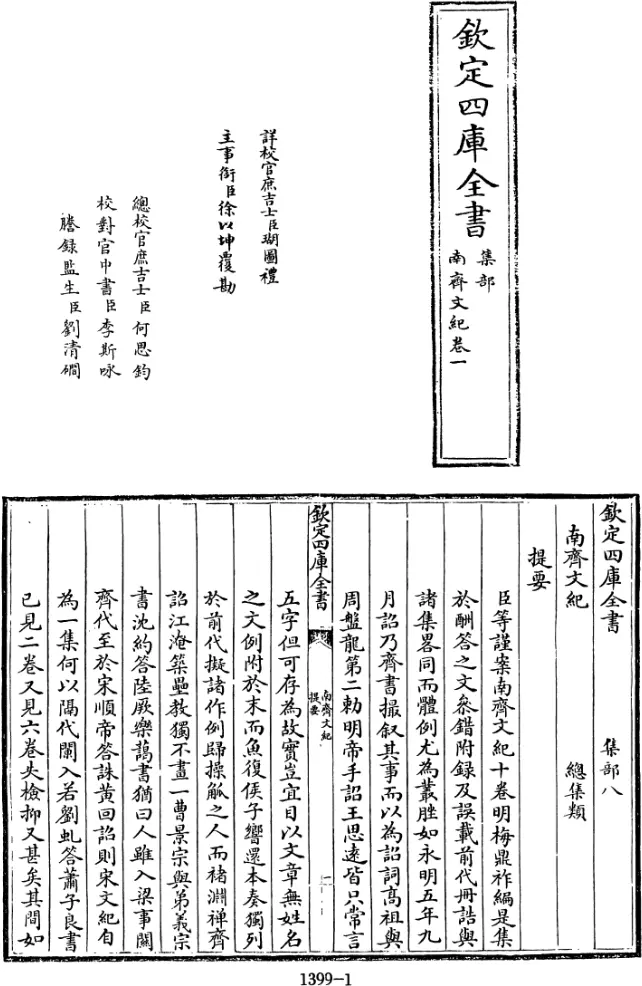 欽定四庫全書
集部
南齊文紀卷一
詳校官庶吉士臣瑚圖禮
主事銜臣徐以坤覆勘
總校官庶吉士臣何思鈞
校對官中書臣李斯咏
謄錄監生臣劉清磵
欽定四庫全書 集部八
南齊文紀 總集類
提要
臣等謹案南齊文紀十卷明梅鼎祚編是集
於酬答之文叅錯附録及誤載前代冊誥與
諸集畧同而體例尤為叢脞如永明五年九
月詔乃齊書撮叙其事而以為詔詞髙祖與
周盤龍第二勅明帝手詔王思逺皆只常言
欽定四庫全書
南齊文紀
提要
二
五字但可存為故實豈宜目以文章無姓名
之文例附於末而魚復侯子響還本奏獨列
於前代擬諸作例歸操觚之人而褚淵禪齊
詔江淹築壘教獨不畫一曹景宗與弟義宗
書沈約答陸厥樂藹書猶曰人雖入梁事闗
齊代至於宋順帝答誅黄回詔則宋文紀自
為一集何以隔代闌入若劉虬答蕭子良書
已見二卷又見六卷失檢抑又甚矣其間如
1399-1